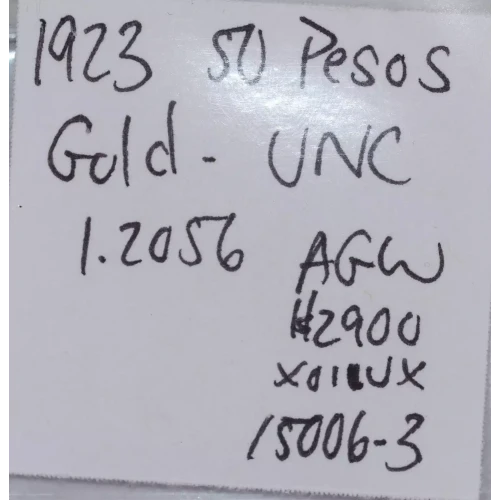 1923 50 Pesos
Gold - UNC
1.2056 AGW
2900
15006-3